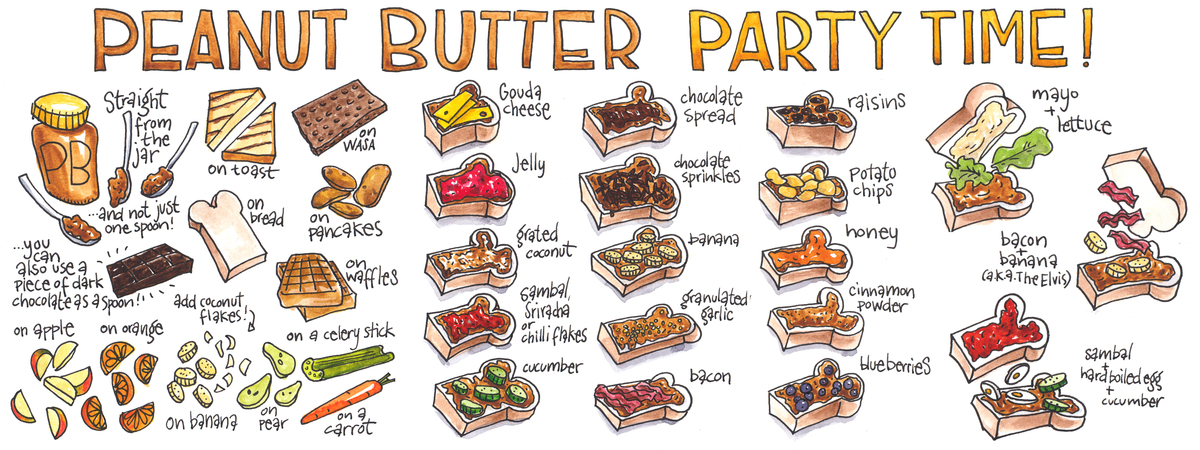 PEANUT BUTTER PARTY TIME!
PB
Straight
from
the
jar
...and not just
one spoon!
...you
can
also use a
piece of dark
chocolate as a spoon!
on toast
on
WASA
on
bread
on
pancakes
on
waffles
add coconut
flakes!
on apple
on orange
on banana
on
pear
on a celery stick
on a
carrot
Gouda
cheese
Jelly
grated
coconut
sambal,
Sriracha
or
chilli flakes
cucumber
chocolate
spread
chocolate
sprinkles
banana
granulated
garlic
bacon
raisins
Potato
chips
honey
cinnamon
powder
blueberries
mayo
+
lettuce
bacon
+
banana
(a.k.a. The Elvis)
sambal
+
hard boiled egg
+
cucumber